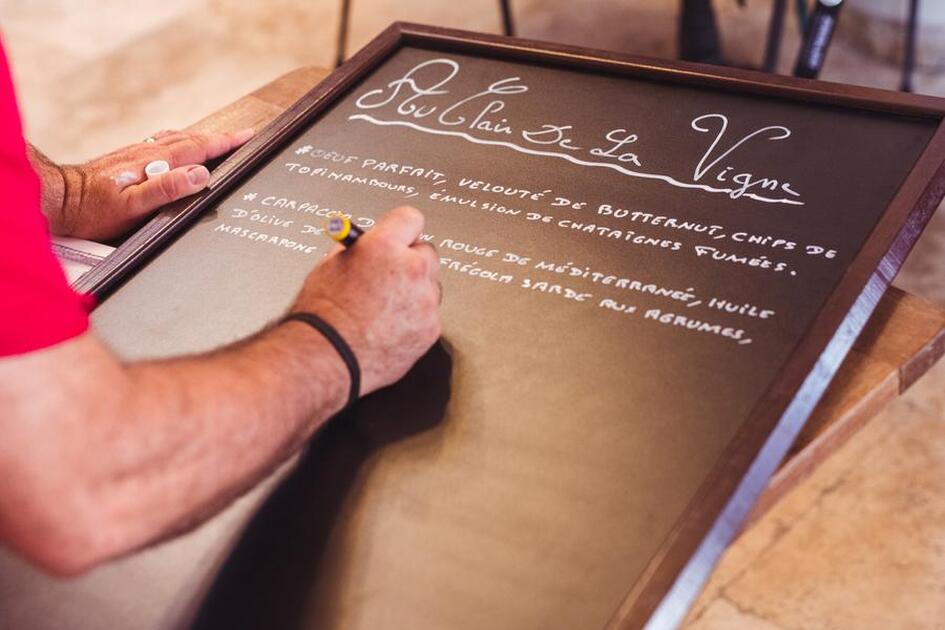 Au Clair De La Vigne
* OEUF PARFAIT, VELOUTÉ DE BUTTERNUT, CHIPS DE
TOPINAMBOURS, ÉMULSION DE CHATAÎGNES FUMÉES.
* CARPACCIO ROUGE DE MÉDITERRANÉE, HUILE
D'OLIVE DE FRÉGOLA SARDE AUX AGRUMES,
MASCARPONE